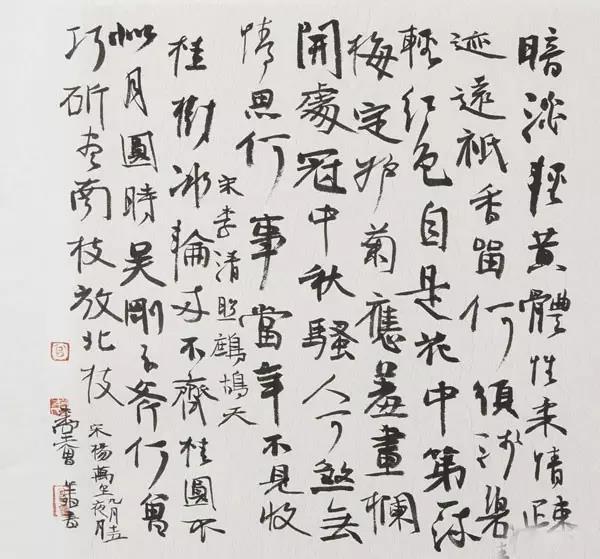 暗淡輕黃體性柔情疎
迹遠祇香留何須淺碧
輕紅色自是花中第一流
梅定妒菊應羞畫欄
開處冠中秋騷人可煞無
情思何事當年不見收
宋李清照鷓鴣天
桂樹冰輪兩不齊桂圓不
似月圓時吳剛玉斧何曾
巧斫盡南枝放北枝
宋楊萬里九月十五夜月